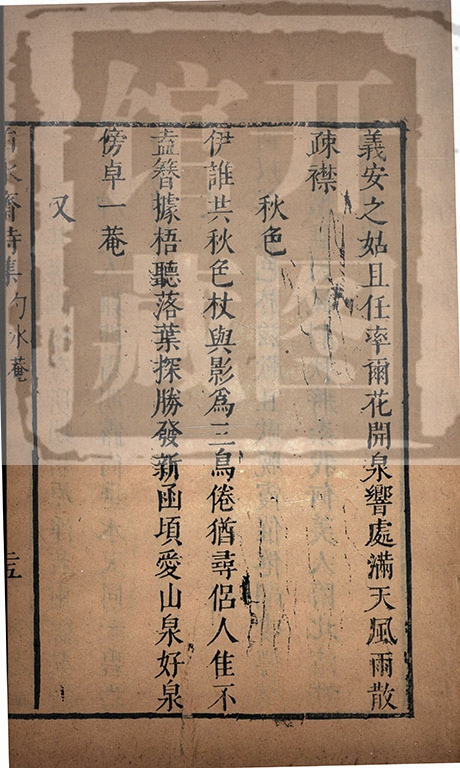 義安之姑且任率爾花開泉響處滿天風雨散
疎襟
秋色
伊誰共秋色杖與影爲三鳥倦猶尋侶人隹不
盍簪據梧聽落葉探勝發新函頃愛山泉好泉
傍卓一菴
又
齋詩集 勺水菴